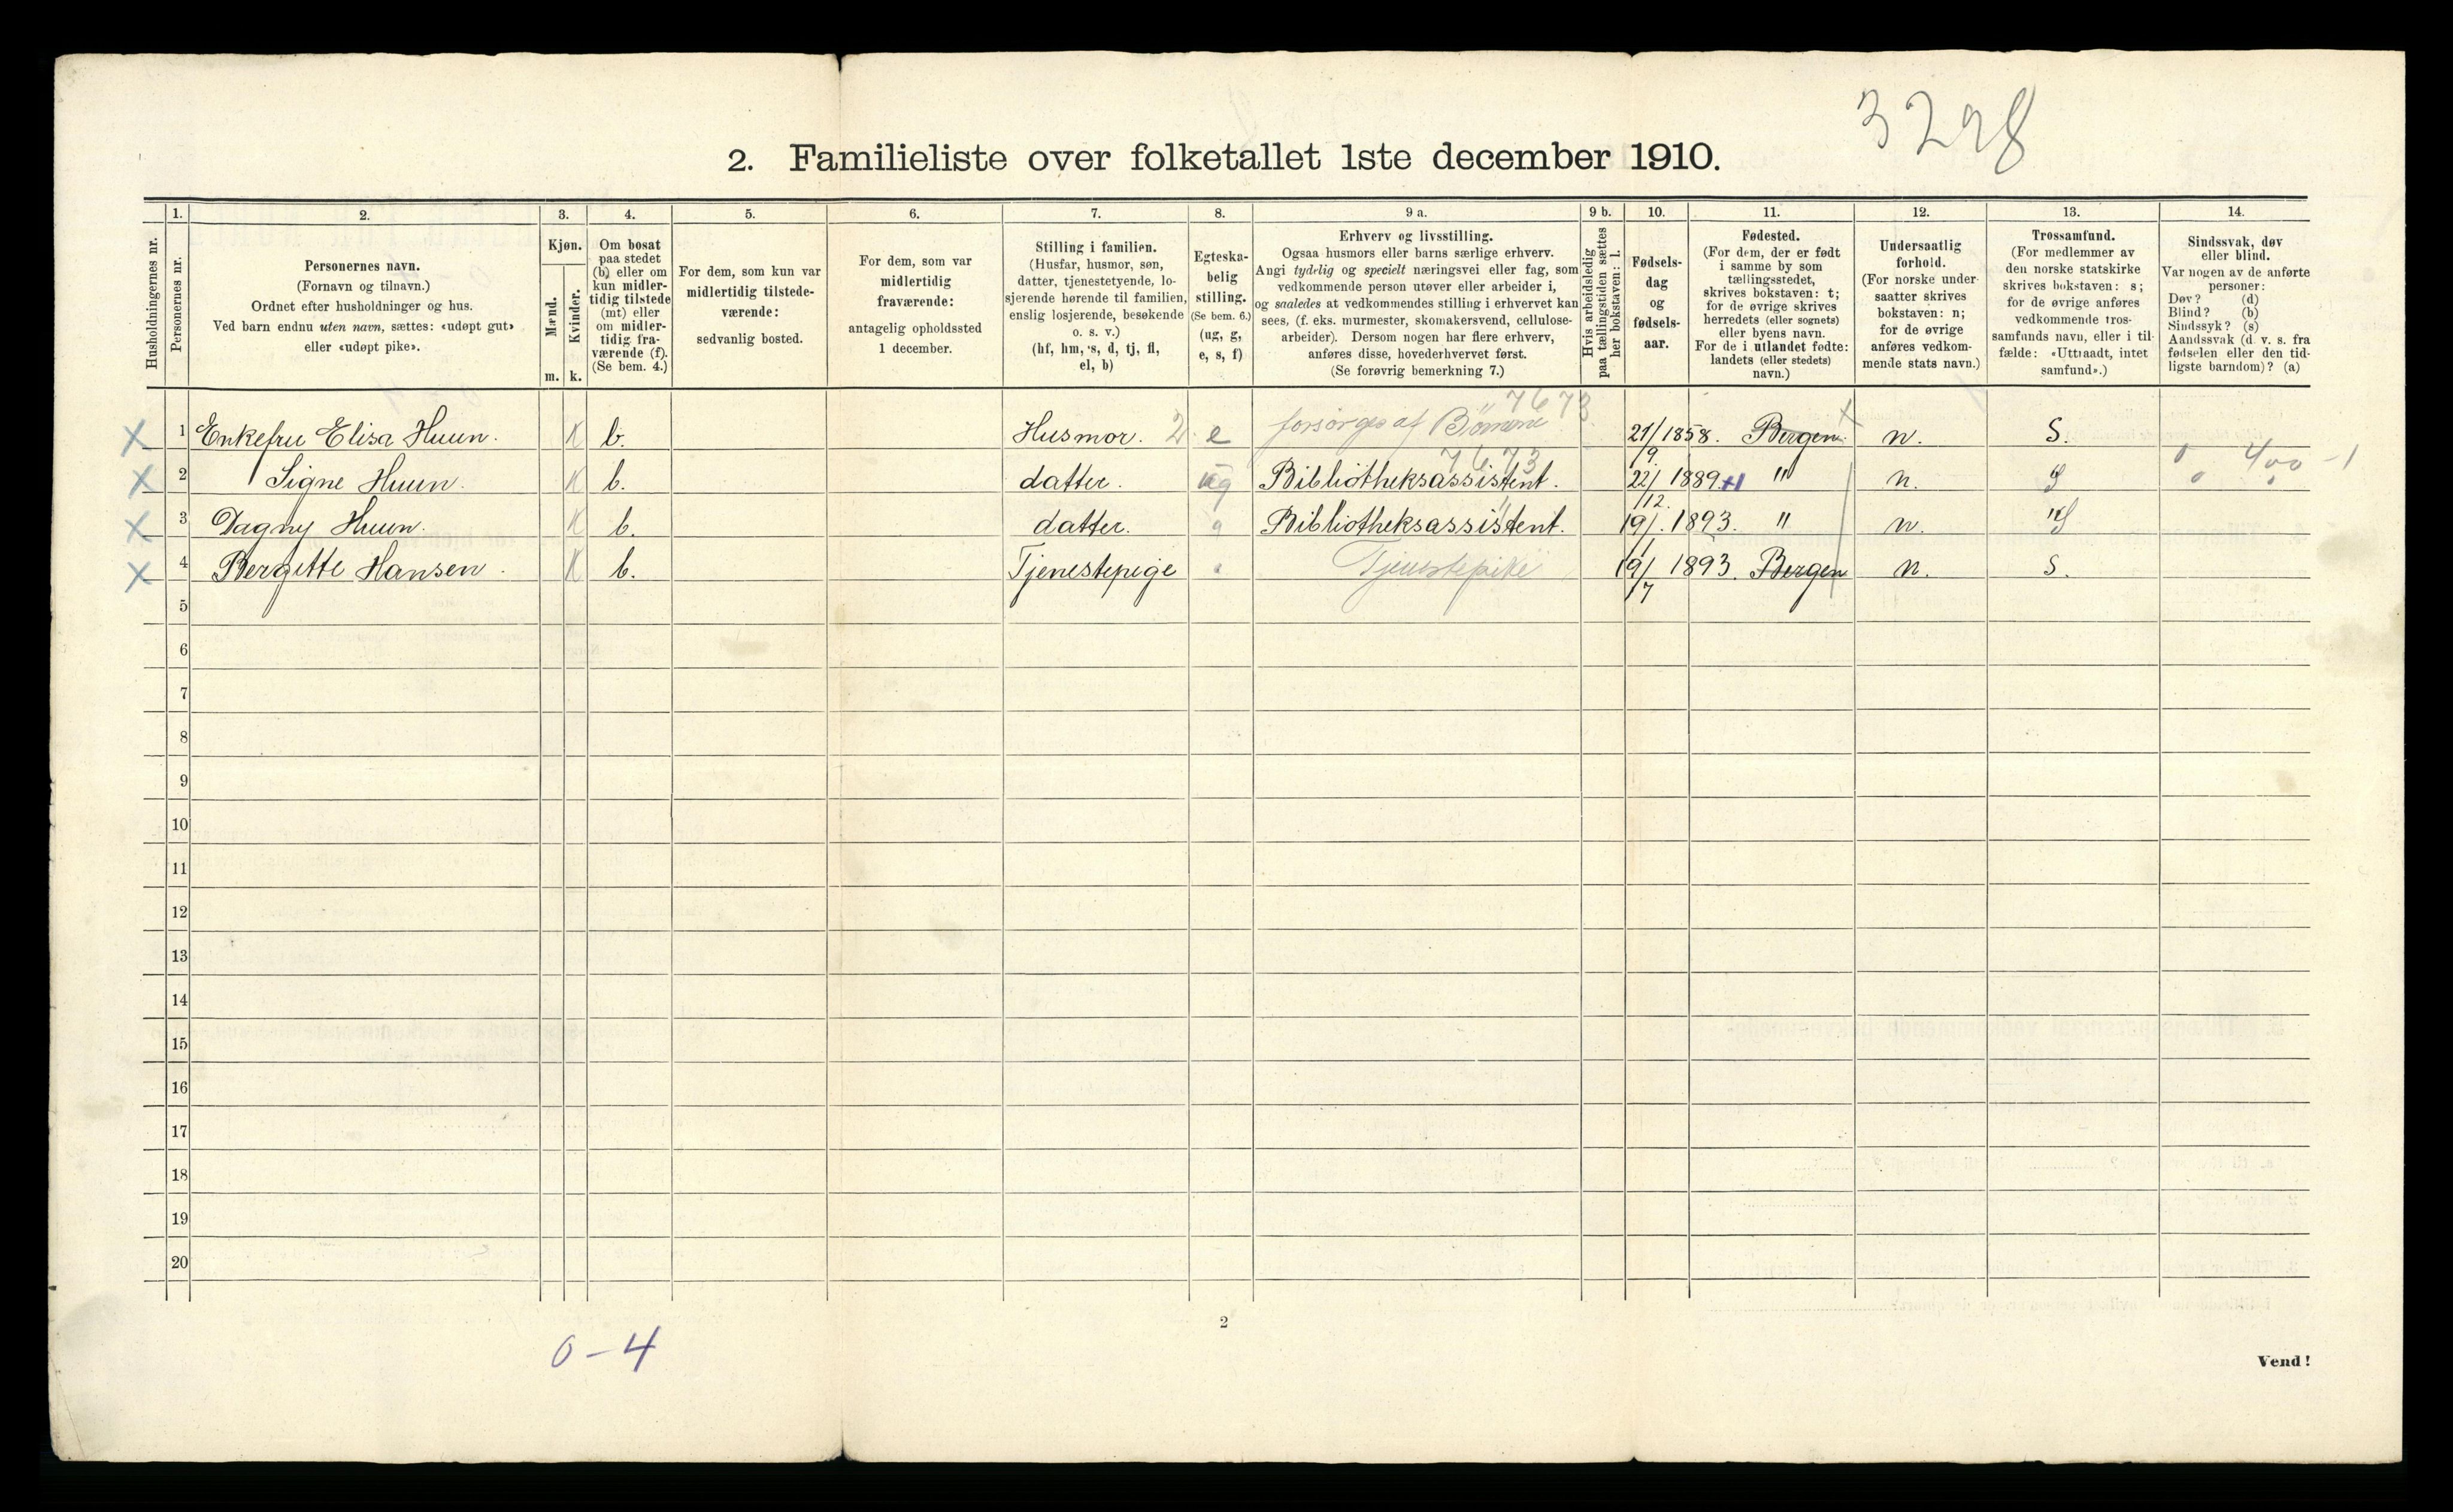 3298
2. Familieliste over folketallet 1ste december 1910.
Husholdningernes nr.
1.
Personernes nr.
2.
Personernes navn.
(Fornavn og tilnavn.)
Ordnet efter husholdninger og hus.
Ved barn endnu uten navn, sættes: «udøpt gut»
eller «udøpt pike».
3.
Kjøn.
Mænd.
m.
Kvinder.
k.
4.
Om bosat
paa stedet
(b) eller om
kun midler-
tidig tilstede
(mt) eller
om midler-
tidig fra-
værende (f).
(Se bem. 4.)
5.
For dem, som kun var
midlertidig tilstede-
værende:
sedvanlig bosted.
6.
For dem, som var
midlertidig
fraværende:
antagelig opholdssted
1 december.
7.
Stilling i familien.
(Husfar, husmor, søn,
datter, tjenestetyende, lo-
sjerende hørende til familien,
enslig losjerende, besøkende
o. s. v.)
(hf, hm, s, d, tj, fl,
el, b)
8.
Egteska-
belig
stilling.
(Se bem. 6.)
(ug, g,
e, s, f)
9 a.
Erhverv og livsstilling.
Ogsaa husmors eller barns særlige erhverv.
Angi tydelig og specielt næringsvei eller fag, som
vedkommende person utøver eller arbeider i,
og saaledes at vedkommendes stilling i erhvervet kan
sees, (f. eks. murmester, skomakersvend, cellulose-
arbeider). Dersom nogen har flere erhverv,
anføres disse, hovederhvervet først.
(Se forøvrig bemerkning 7.)
9 b.
Hvis arbeidsledig
paa tællingstiden sættes
her bokstaven: l.
10.
Fødsels-
dag
og
fødsels-
aar.
11.
Fødested.
(For dem, der er født
i samme by som
tællingsstedet,
skrives bokstaven: t;
for de øvrige skrives
herredets (eller sognets)
eller byens navn.
For de i utlandet fødte:
landets (eller stedets)
navn.)
12.
Undersaatlig
forhold.
(For norske under-
saatter skrives
bokstaven: n;
for de øvrige
anføres vedkom-
mende stats navn.)
13.
Trossamfund.
(For medlemmer av
den norske statskirke
skrives bokstaven: s;
for de øvrige anføres
vedkommende tros-
samfunds navn, eller i til-
fælde: «Uttraadt, intet
samfund».)
14.
Sindssvak, døv
eller blind.
Var nogen av de anførte
personer:
Døv? (d)
Blind? (b)
Sindssyk? (s)
Aandssvak (d. v. s. fra
fødselen eller den tid-
ligste barndom)? (a)
7673
X 1 Enkefru Elisa Huun. K b. Husmor. 2 e forsørges af Børnene 21/9 1858. Bergen. n. S.
7673 400 - 1
X 2 Signe Huun. K b. datter. ug Bibliotheksassistent. 22/12. 1889. " n. S
X 3 Dagny Huun. K b. datter. Bibliotheksassistent. 19/1. 1893. " n. " S
X 4 Bergitte Hansen. K b. Tjenestepige Tjenestepike 19/7 1893. Bergen n. S.
5
6
7
8
9
10
11
12
13
14
15
16
17
18
19
20
2
0-4
Vend!